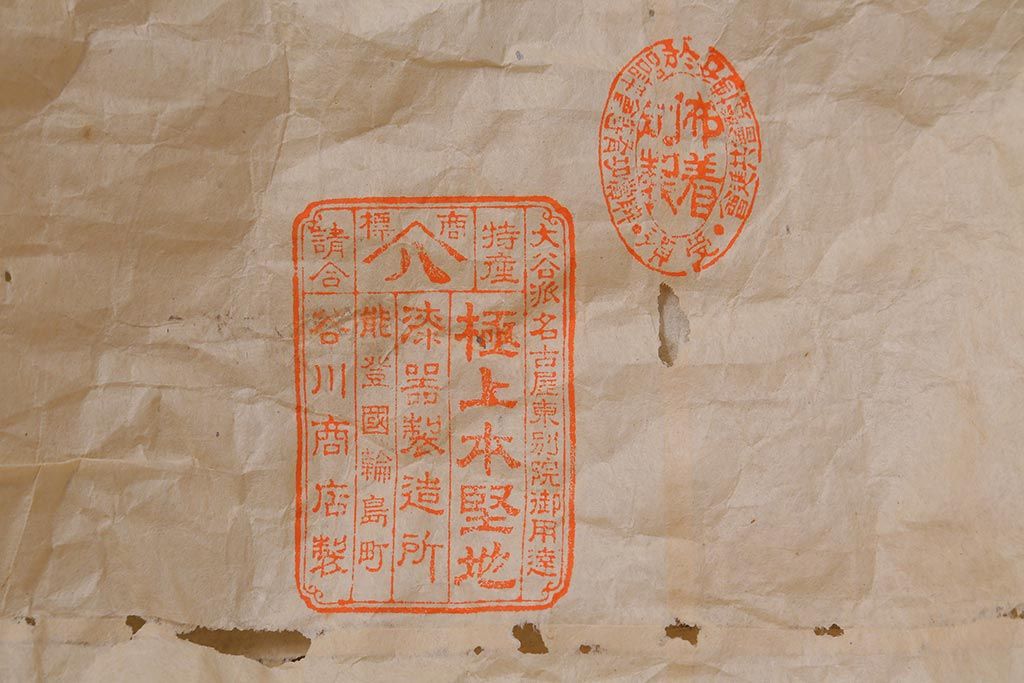 大谷派名古屋東別院御用達
特産
極上本堅地
商標
八
漆器製造所
能登國輪島町
請合
谷川商店製
佛着
別製